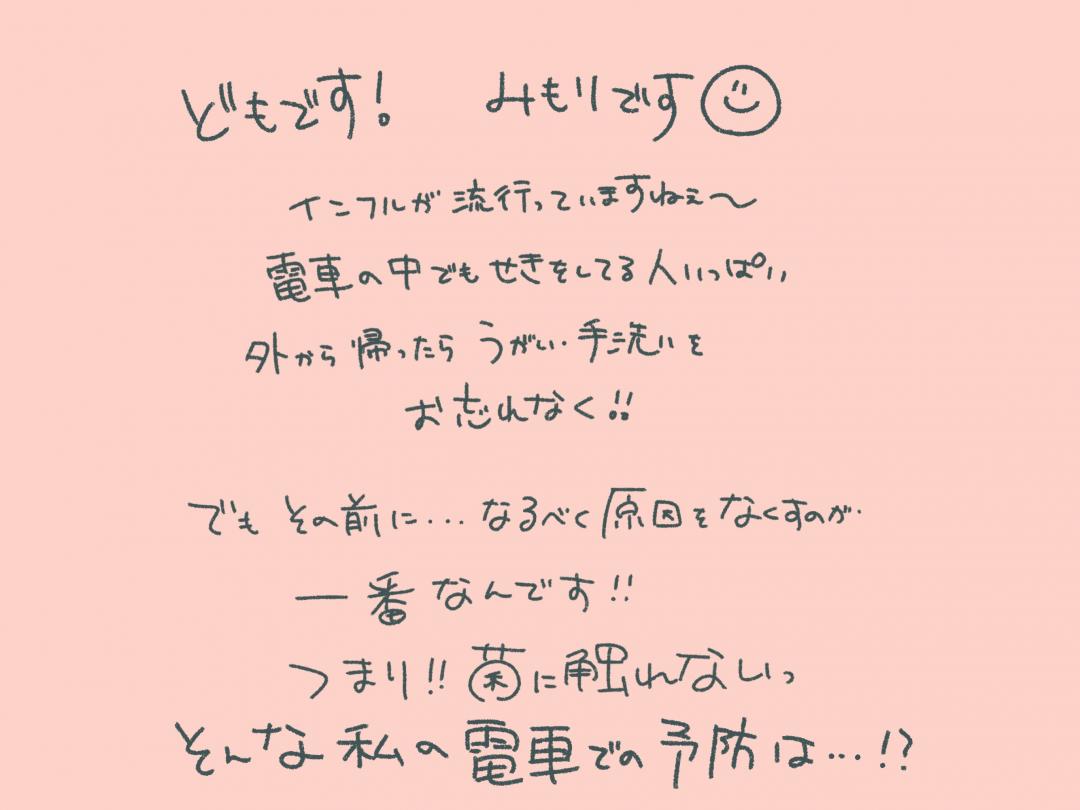 どもです! みもりです
インフルが流行っていますねぇ〜
電車の中でもせきをしてる人いっぱい
外から帰ったら うがい・手洗いを
お忘れなく!!
でも その前に... なるべく原因をなくすのが
一番なんです!!
つまり!! 菌に触れないっ
そんな私の電車での予防は...!?